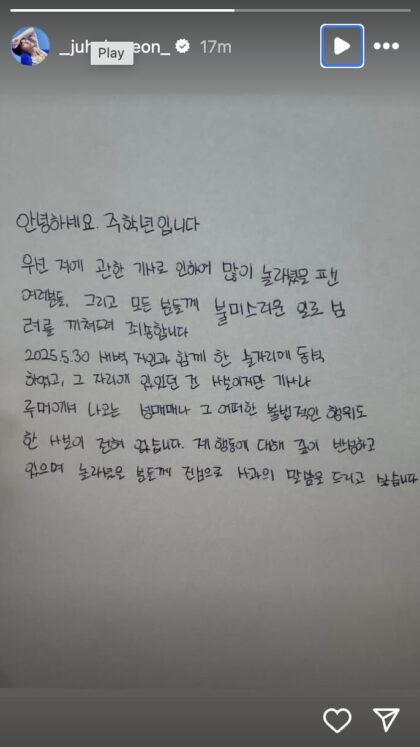 17m
Play
안녕하세요. 주학년입니다
우선 저에 관한 기사로 인하여 많이 놀라셨을 팬
여러분들, 그리고 모든 분들께 불미스러운 일로 심
려를 끼쳐드려 죄송합니다
2025.5.30 새벽 지인과 함께 한 술자리에 동석
하였고, 그 자리에 있었던 건 사실이지만 기사나
루머에서 나오는 성매매나 그 어떠한 불법적인 행위도
한 사실이 전혀 없습니다. 제 행동에 대해 깊이 반성하고
있으며 놀라셨을 분들께 진심으로 사과의 말씀을 드리고 싶습니다